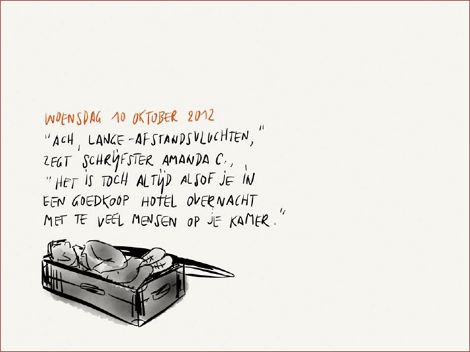 WOENSDAG 10 OKTOBER 2012
"ACH, LANGE-AFSTANDSVLUCHTEN,"
ZEGT SCHRIJFSTER AMANDA C.,
"HET IS TOCH ALTIJD ALSOF JE IN
EEN GOEDKOOP HOTEL OVERNACHT
MET TE VEEL MENSEN OP JE KAMER."